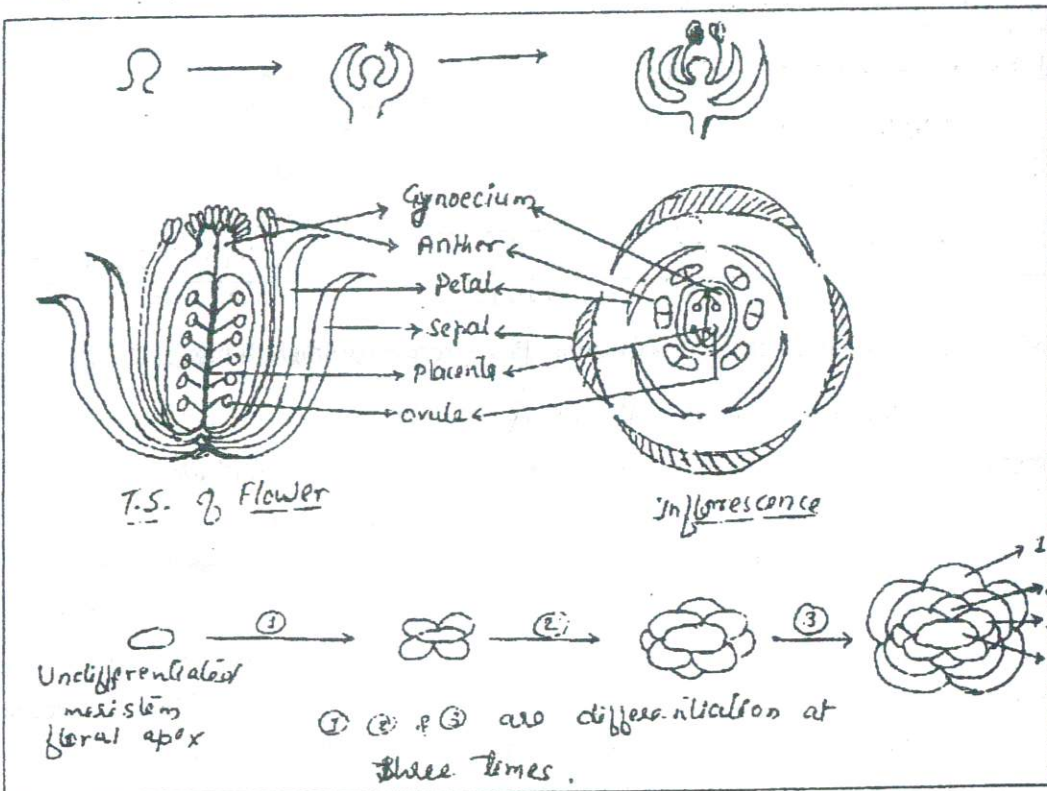 Gynoecium
Anther
Petal
Sepal
Placenta
ovule
T.S. of Flower
Inflorescence
1
① ② ③
Undifferentiated
meristem
floral apex
① ② & ③ are differentiation at
three times.